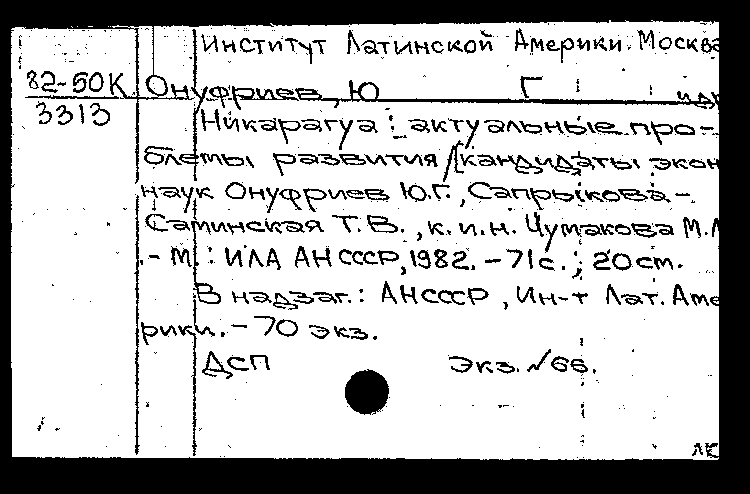 Институт Латинской Америки. Москва
82-50К Онуфриев, Ю Г идр
3313
Никарагуа : актуальные про-
блемы развития /[кандидаты экон
наук Онуфриев Ю.Г., Сапрыкова-
Саминская Т.В., к.и.н. Чумакова М.Л
.- М. : ИЛА АН СССР, 1982. - 71с. ; 20 ст.
В надзаг. : АН СССР, Ин-т Лат. Аме
рики. - 70 экз.
ДСП Экз. №66.
ЛК